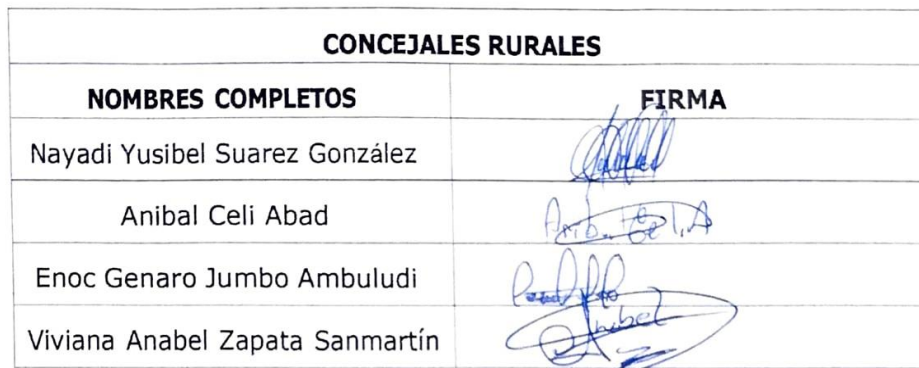 CONCEJALES RURALES
NOMBRES COMPLETOS FIRMA
Nayadi Yusibel Suarez González
Anibal Celi Abad
Enoc Genaro Jumbo Ambuludi
Viviana Anabel Zapata Sanmartín